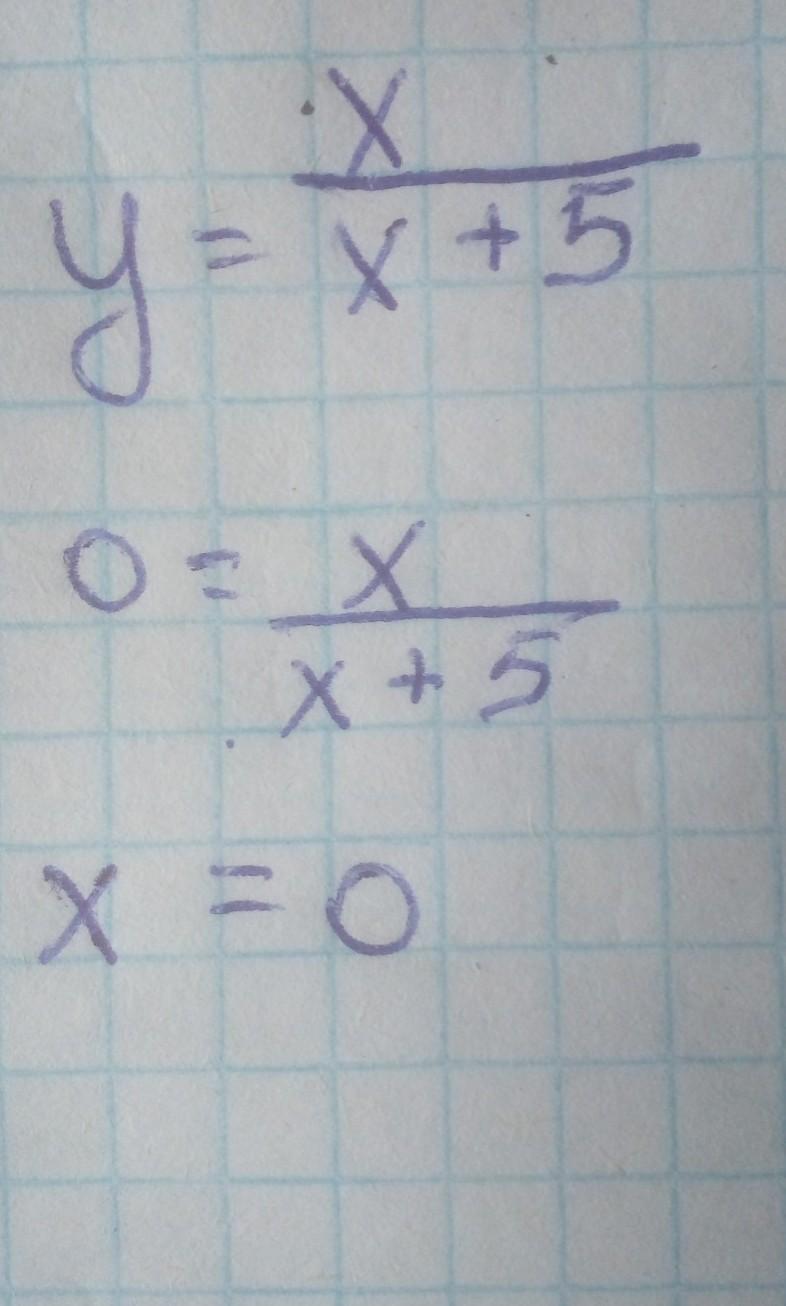 y = x / x + 5
0 = x / x + 5
x = 0